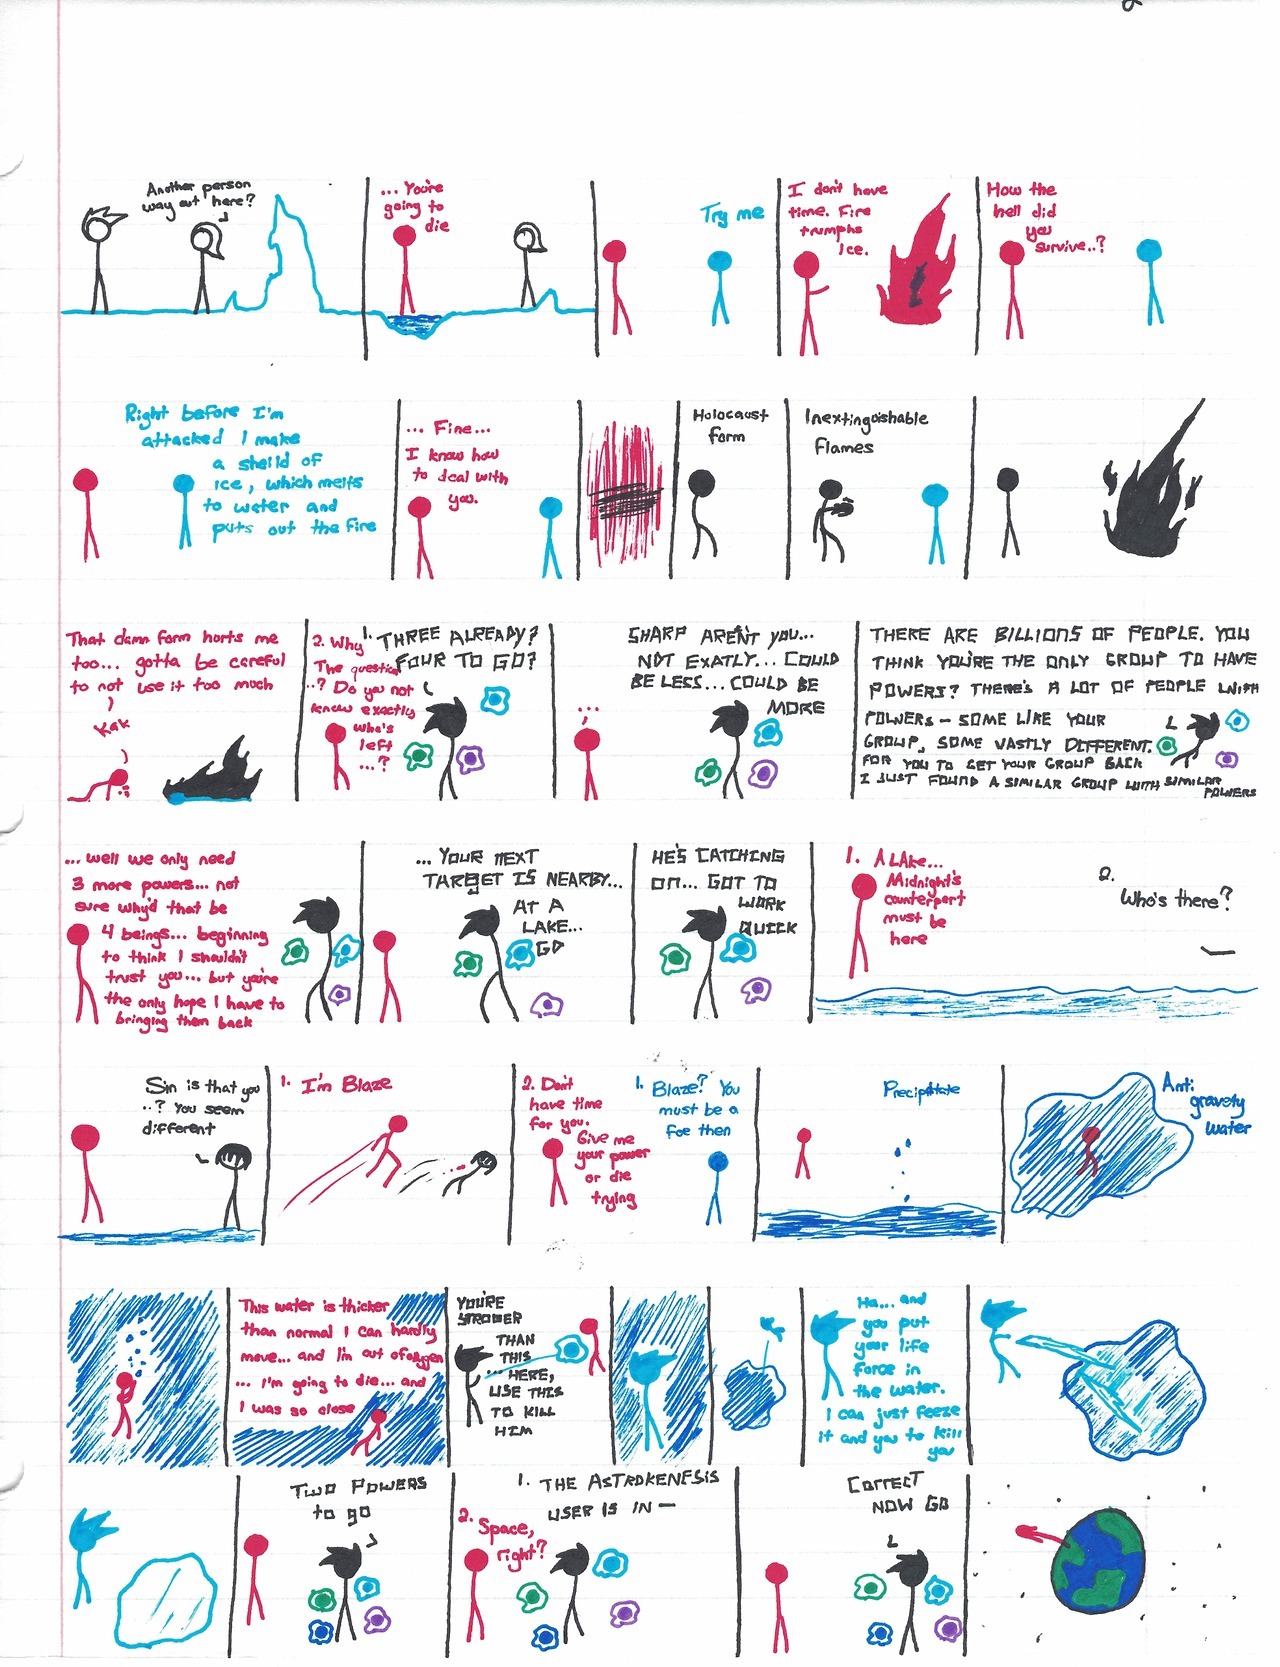 Another person
way out here?
... You're
going to
die
Try me
I don't have
time. Fire
trumphs
Ice.
How the
hell did
you
survive..?
Right before I'm
attacked I make
a sheild of
ice, which melts
to water and
puts out the fire
... Fine...
I know how
to deal with
you.
Holocaust
form
Inextinguishable
flames
That damn form hurts me
too... gotta be careful
to not use it too much
Kak
1. THREE ALREADY?
FOUR TO GO?
2. Why
The question
..? Do you not
know exactly
who's
left
...?
SHARP AREN'T YOU...
NOT EXATLY... COULD
BE LESS... COULD BE
MORE
...
THERE ARE BILLIONS OF PEOPLE. YOU
THINK YOU'RE THE ONLY GROUP TO HAVE
POWERS? THERE'S A LOT OF PEOPLE WITH
POWERS - SOME LIKE YOUR
GROUP, SOME VASTLY DIFFERENT.
FOR YOU TO GET YOUR GROUP BACK
I JUST FOUND A SIMILAR GROUP WITH SIMILAR
POWERS
... well we only need
3 more powers... not
sure why'd that be
4 beings... beginning
to think I shouldn't
trust you... but you're
the only hope I have to
bringing them back
... YOUR NEXT
TARGET IS NEARBY...
AT A
LAKE...
GO
HE'S CATCHING
ON... GOT TO
WORK
QUICK
1. A LAke...
Midnight's
counterpart
must be
here
2.
Who's there?
Sin is that you
..? You seem
different
1. I'm Blaze
1. Blaze? You
must be a
foe then
2. Don't
have time
for you.
Give me
your power
or die
trying
Precipitate
Anti
gravety
water
This water is thicker
than normal I can hardly
move... and I'm out of oxygen
... I'm going to die... and
I was so close
YOU'RE
STROGER
THAN
THIS
... HERE,
USE THIS
TO KILL
HIM
Ha... and
you put
your life
force in
the water.
I can just feeze
it and you to kill
you
TWO POWERS
to go
1. THE ASTROKENESIS
USER IS IN —
2. Space,
right?
CORRECT
NOW GO